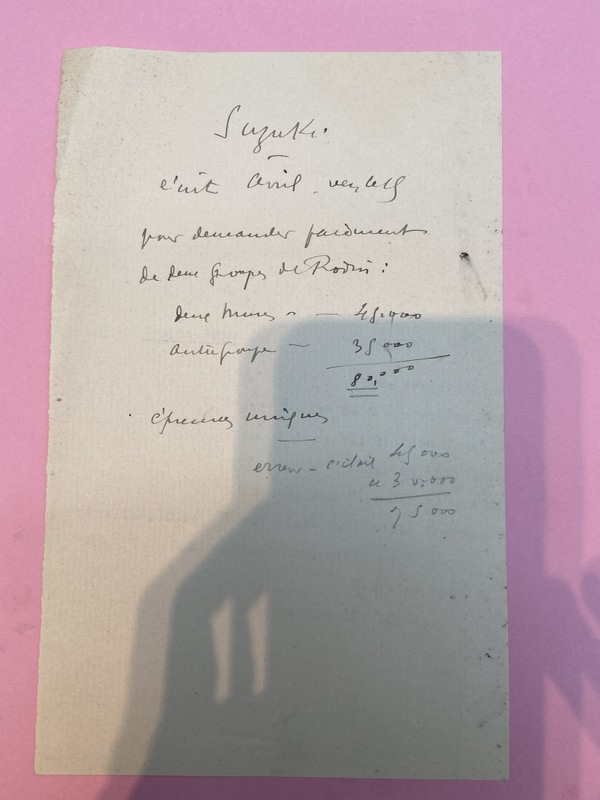 Suzuki.
écrit Avril
pour demander paiement
de deux groupes de Rodin :
deux — 45.000
autre groupe — 35 000
80,000
épreuves uniques
erreur - c'était 45 000
et 30.000
75 000